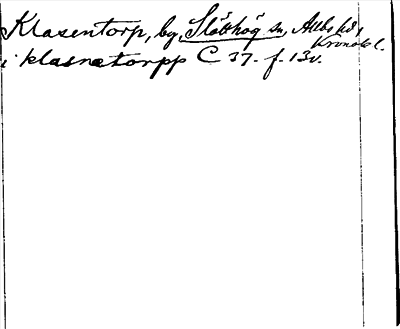 Klasentorp, by, Slätthög sn, Allbo hd,
Kronob. l.
i klasnatorpp C 37. f. 13v.